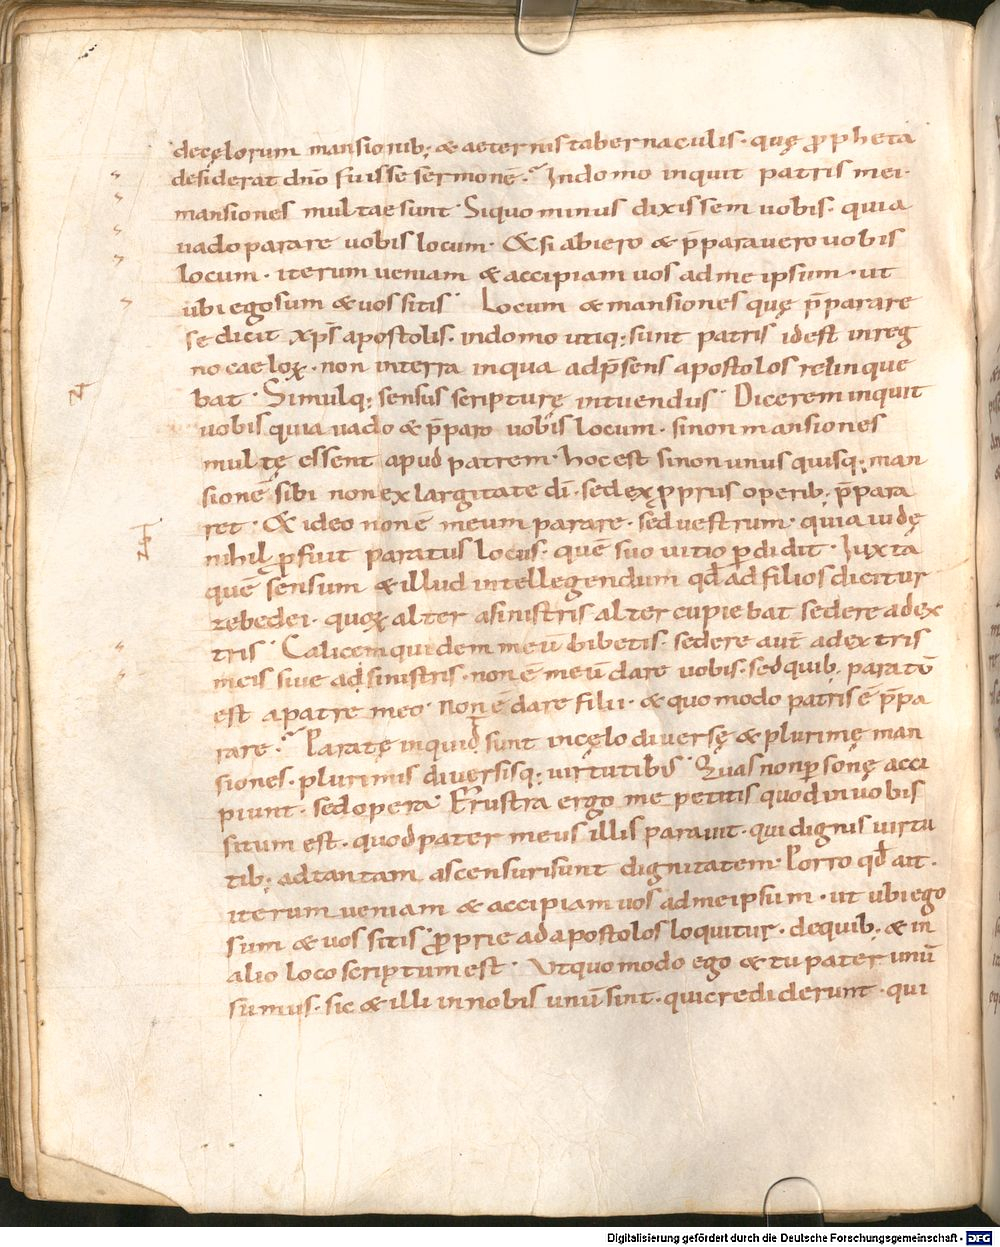 decęlorum mansionib; & aeternis tabernaculis · quę ꝓpheta
desiderat dn̄o fuisse sermonē · Indomo inquit patris mei ·
mansiones multae sunt · Siquo minus dixissem uobis · quia
uado parare uobis locum · & si abiero & p̄parauero uobis
locum · iterum ueniam & accipiam uos ad me ipsum · ut
ubi ego sum & uos sitis · Locum & mansiones quę p̄parare
se dicit xp̄s apostolis · indomo utiq; sunt patris id est inreg
no caeloꝝ · non interra inqua adp̄sens apostolos relinque
bat · Simulq; sensus scripturę intuendus · Dicerem inquit
uobis quia uado & p̄paro uobis locum · sinon mansiones
multę essent apud patrem · hoc est sinon unus quisq; man
sionē sibi non ex largitate dī · sed ex ꝓpriis operib; p̄para
ret · & ideo non ē meum parare · sed uestrum · quia iudę
nihil ꝓfuit paratus locus · quē suo uitio ꝑdidit · Iuxta
quē sensum & illud intellegendum qđ ad filios dicitur
zebedei · quoꝝ alter asinistris alter cupiebat sedere adex
tris · Calicem quidem meū bibetis · sedere aut̄ adextris
meis siue ad sinistris · non ē meū dare uobis · sed quib; paratū
est apatre meo · non ē dare filii · & quo modo patris ē p̄pa
rare · Paratę inquid sunt incęlo diuersę & plurimę man
siones · plurimis diuersisq; uirtutibus · Quas non ꝑsonę acci
piunt · sed opera · Frustra ergo me petitis quod in uobis
situm est · quod pater meus illis parauit · qui dignis uirtu
tib; ad tantam ascensuri sunt dignitatem · Porro qđ ait ·
iterum ueniam & accipiam uos ad me ipsum · ut ubi ego
sum & uos sitis · ꝓprie ad apostolos loquitur · dequib; & in
alio loco scriptum est · Ut quo modo ego & tu pater unū
sumus · sic & illi in nobis unū sint · qui crediderunt · qui
Digitalisierung gefördert durch die Deutsche Forschungsgemeinschaft - DFG